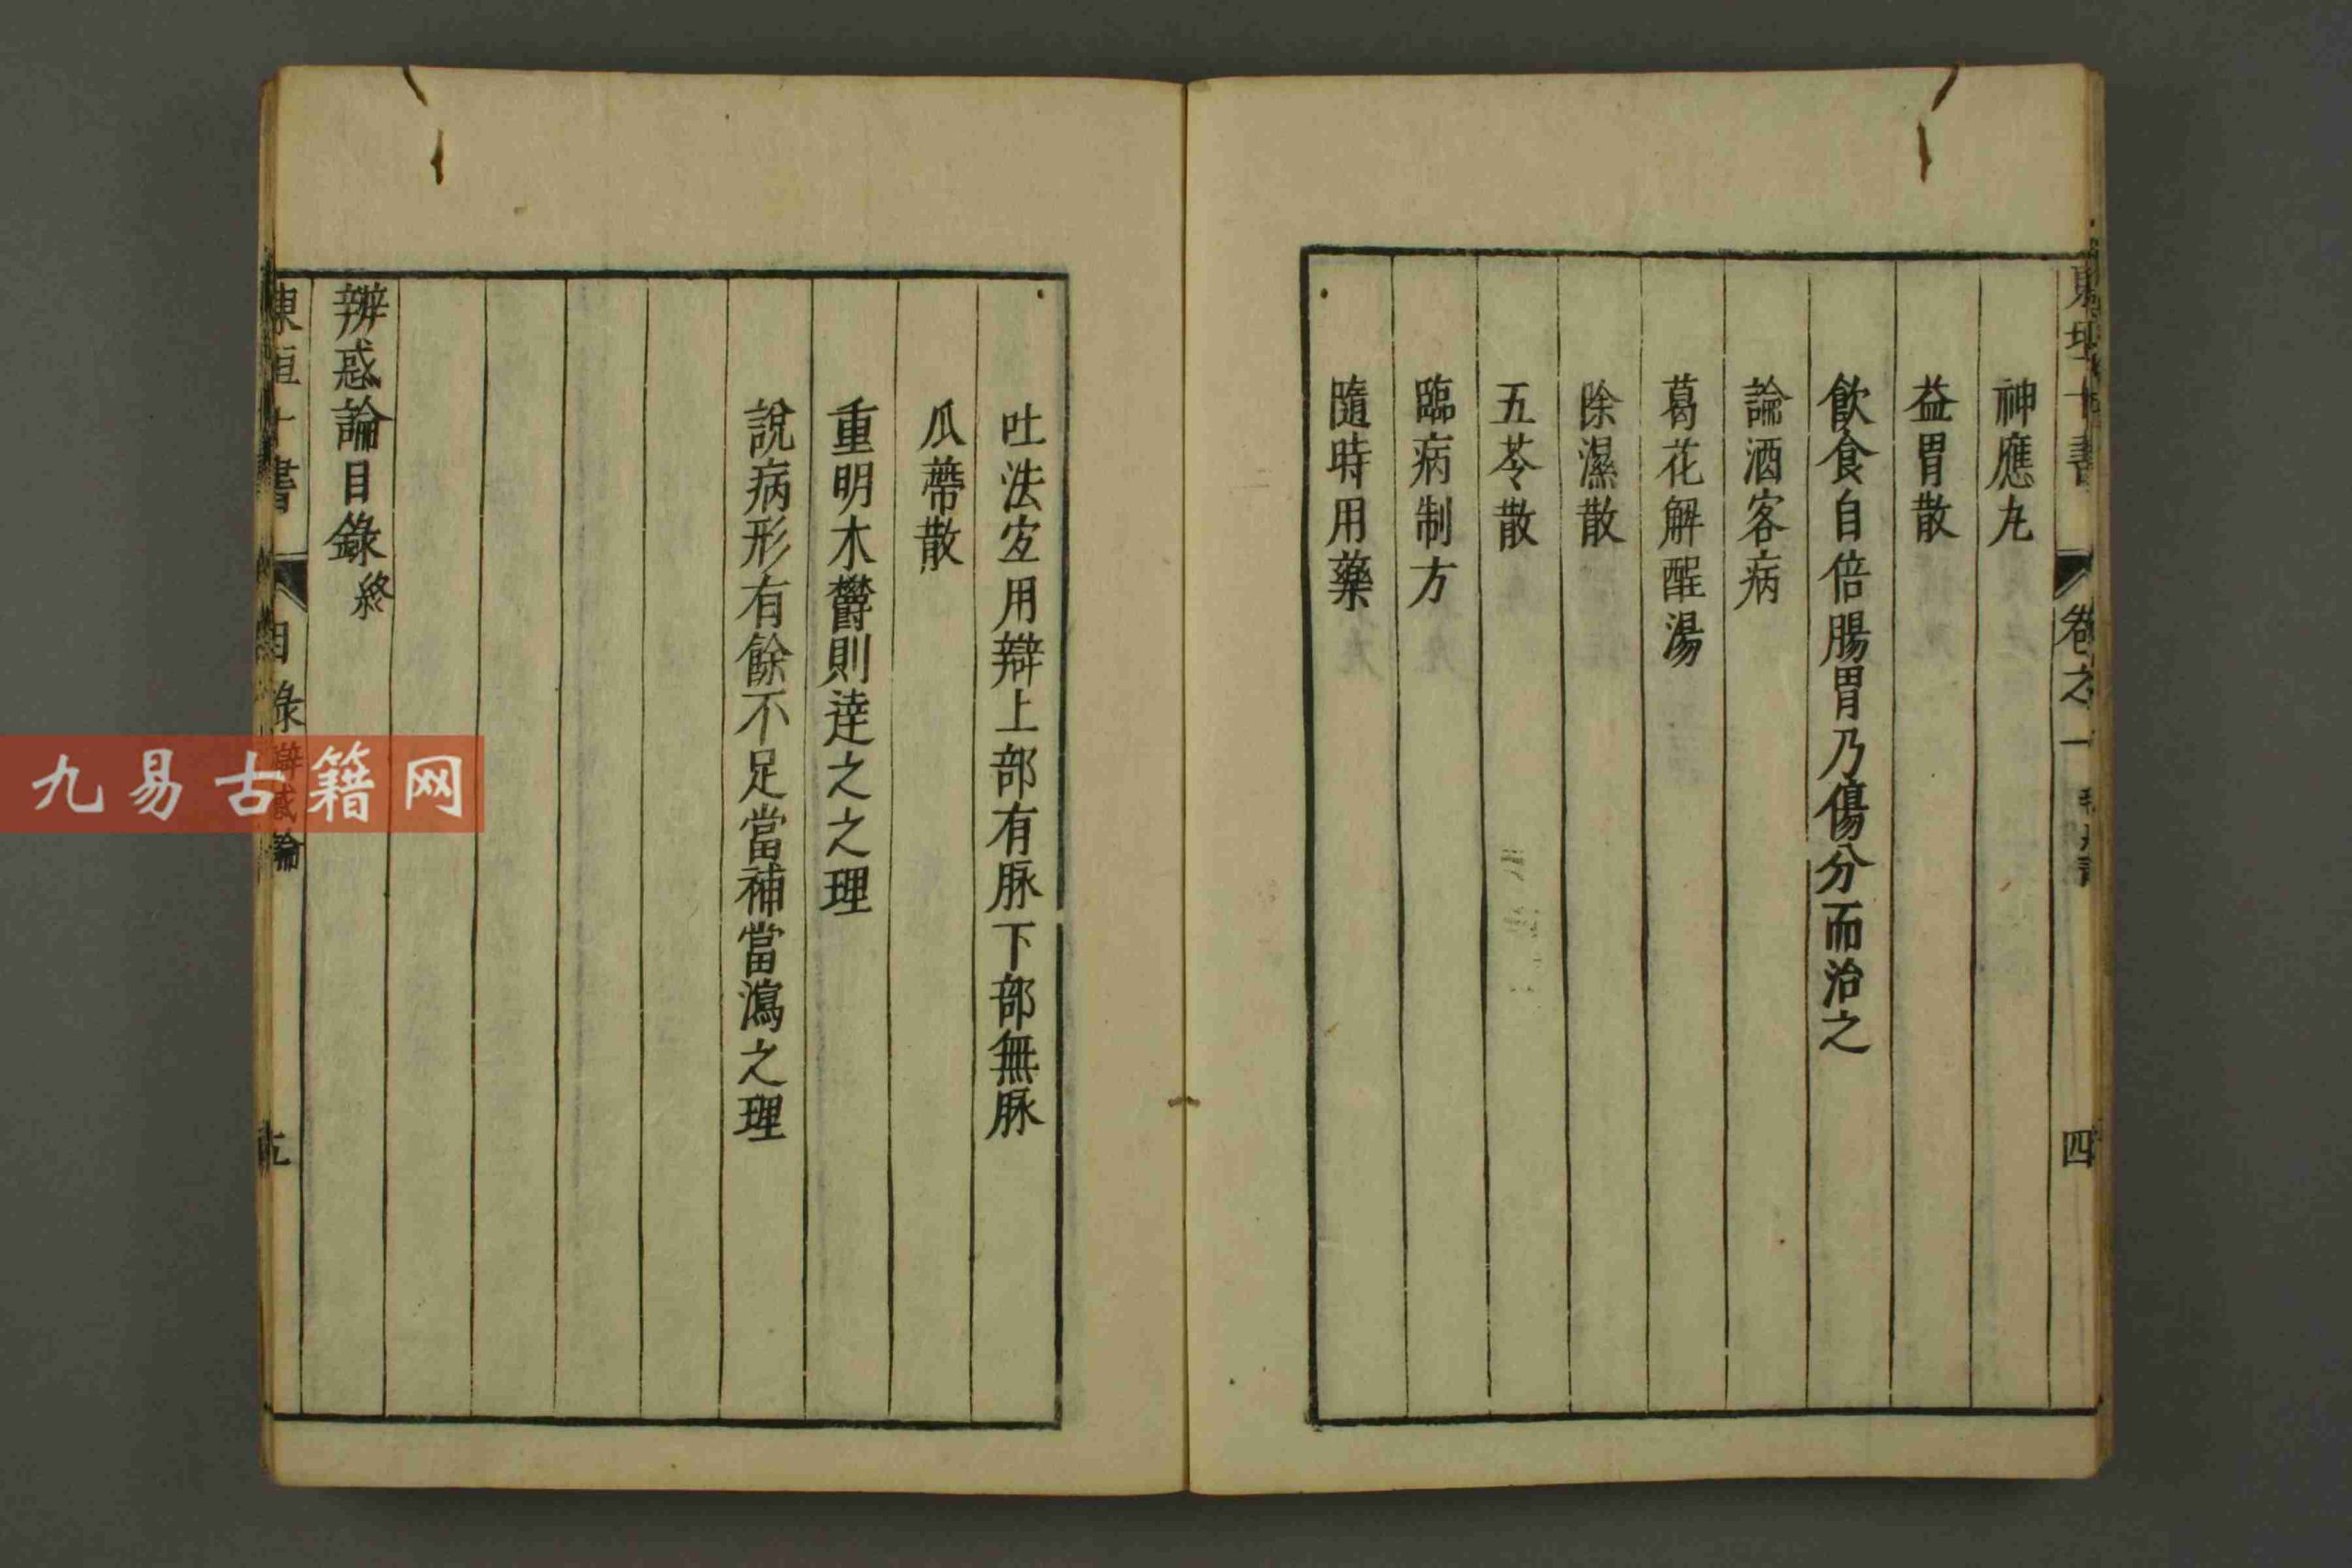 東垣十書 卷之一 四
神應丸
益胃散
飲食自倍腸胃乃傷分而治之
論酒客病
葛花解酲湯
除濕散
五苓散
臨病制方
隨時用藥
吐法宐用辯上部有脉下部無脉
瓜蔕散
重明木欎則逹之之理
說病形有餘不足當補當瀉之理
辨惑論目錄終
東垣十書 目錄 辯惑論 五
九易古籍网